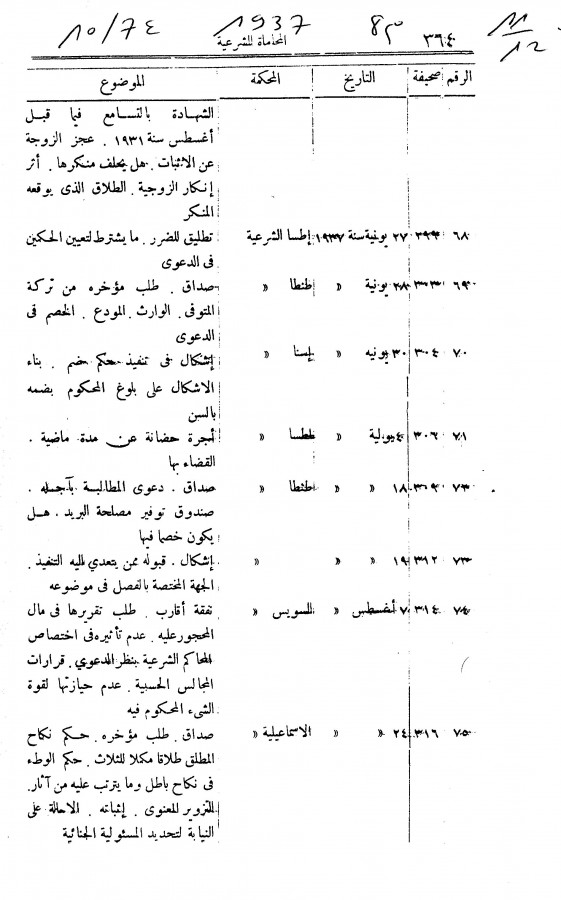 ١٠/٧٤ ١٩٣٧ ٨٣ ١١/١٢
٣٦٤ المحاماة الشرعية
الرقم صحيفة التاريخ المحكمة الموضوع
الشهادة بالتسامع فيما قبل
أغسطس سنة ١٩٣١ . عجز الزوجة
عن الاثبات . هل يحلف منكرها . أثر
إنكار الزوجية . الطلاق الذى يوقعه
المنكر
٦٨ ٢٧ يونية سنة ١٩٣٧ إطسا الشرعية تطليق للضرر . ما يشترط لتعيين الحكمين
فى الدعوى
٦٩ ٢٨ يونية » طنطا » صداق . طلب مؤخره من تركة
المتوفى . الوارث . المودع . الخصم فى
الدعوى
٧٠ ٣٠٤ ٣٠ يونيه » إسنا » إشكال فى تنفيذ حكم ضم . بناء
الاشكال على بلوغ المحكوم بضمه
بالسن
٧١ ٣٠٦ ٤ يولية » » أجرة حضانة عن مدة ماضية .
القضاء بها
١٨ » » طنطا » صداق . دعوى المطالبة بآجله .
صندوق توفير مصلحة البريد . هل
يكون خصما فيها
٧٣ ٣١٢ ١٩ » » » إشكال . قبوله ممن يتعدي إليه التنفيذ .
الجهة المختصة بالفصل فى موضوعه
٧٤ ٣١٤ ٧ أغسطس » السويس » نفقة أقارب . طلب تقريرها فى مال
المحجور عليه . عدم تأثيره فى اختصاص
المحاكم الشرعية بنظر الدعوي . قرارات
المجالس الحسبية . عدم حيازتها لقوة
الشىء المحكوم فيه
٧٥ ٣١٦ ٢٤ » » الاسماعيلية » صداق . طلب مؤخره . حكم نكاح
المطلق طلاقا مكملا للثلاث . حكم الوطء
فى نكاح باطل وما يترتب عليه من آثار .
التزوير المعنوى . إثباته . الاحالة على
النيابة لتحديد المسئولية الجنائية